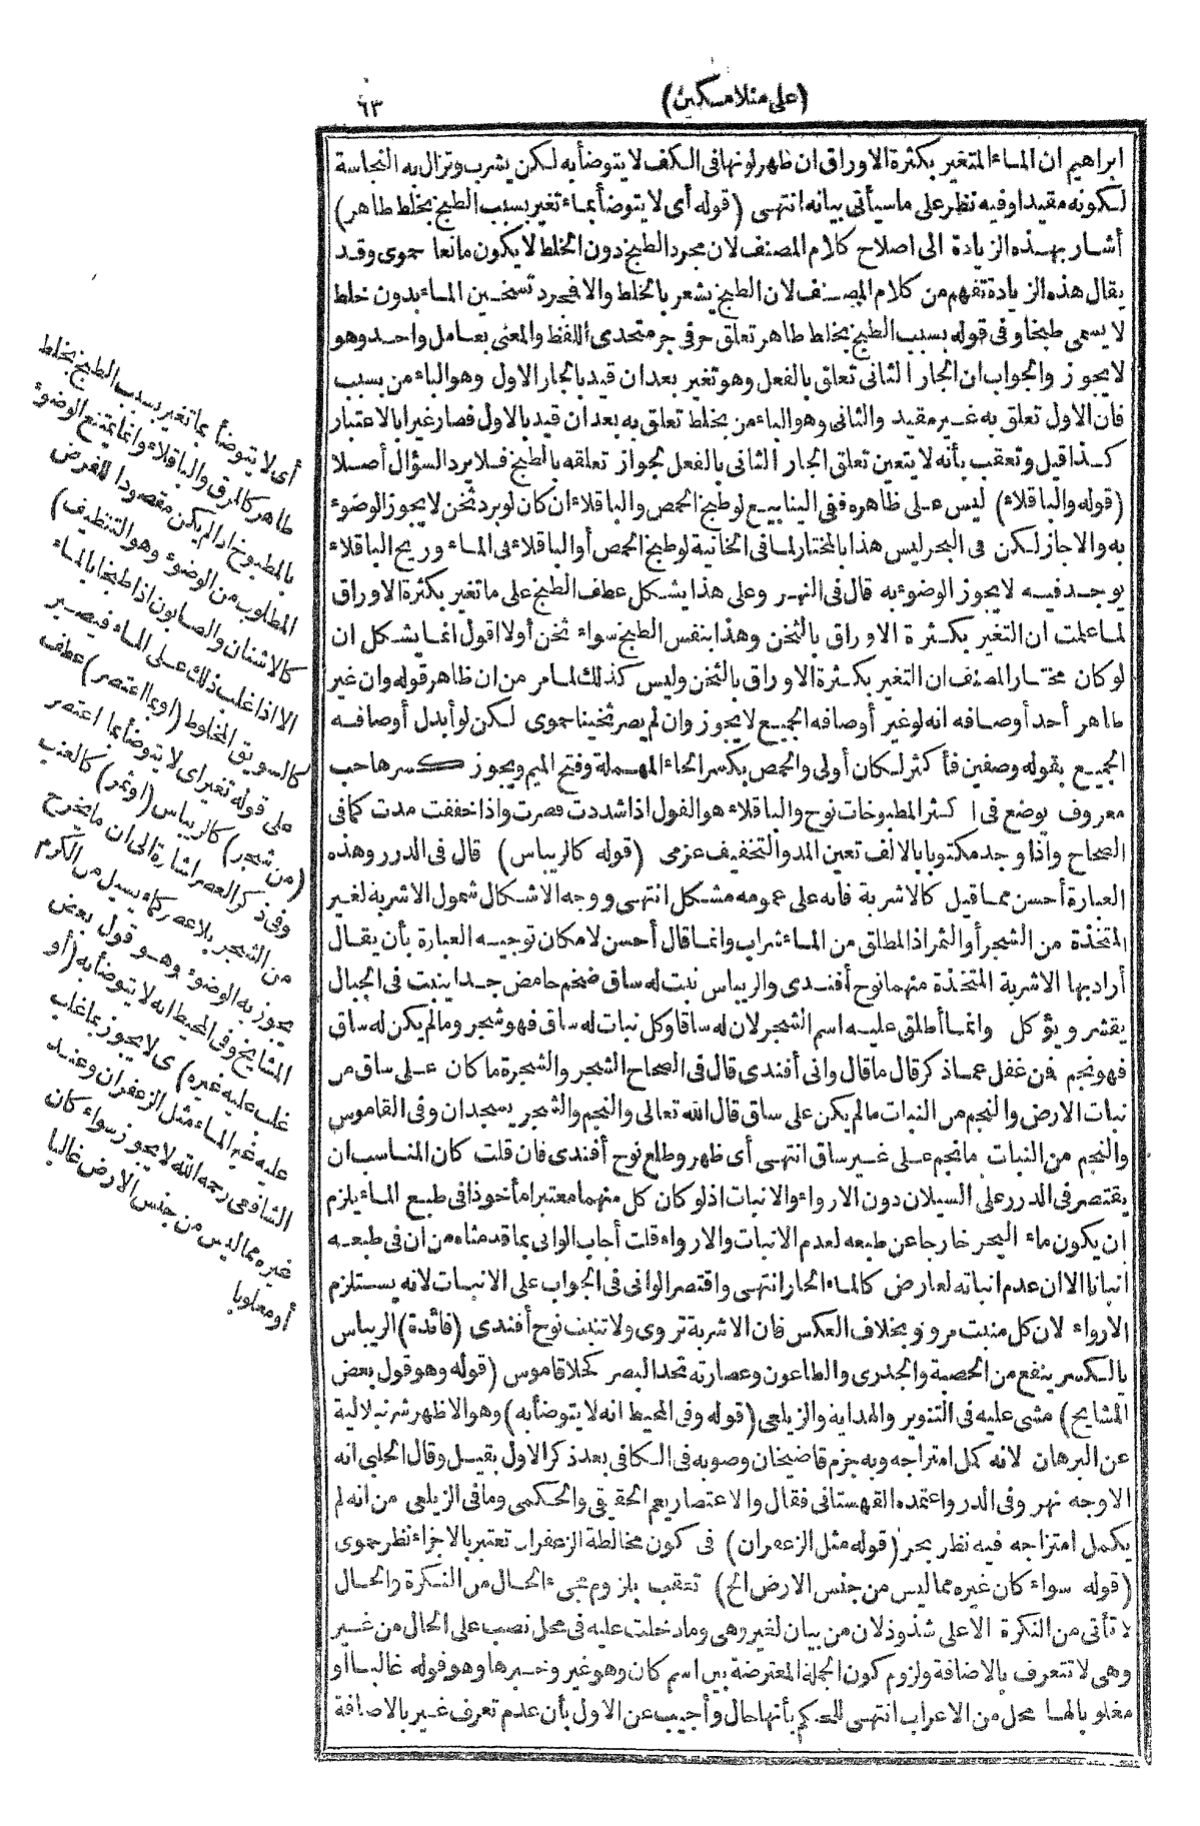 (على منلا مسكين)
٦٣
ابراهيم ان الماء المتغير بكثرة الاوراق ان ظهر لونها فى الكف لا يتوضأ به لكن يشرب وتزال به النجاسة
لكونه مقيدا وفيه نظر على ما سيأتى بيانه انتهى (قوله أى لا يتوضأ بماء تغير بسبب الطبخ بخلط طاهر)
أشار بهذه الزيادة الى اصلاح كلام المصنف لان مجرد الطبخ دون الخلط لا يكون مانعا حموى وقد
يقال هذه الزيادة تفهم من كلام المصنف لان الطبخ يشعر بالخلط والا فمجرد تسخين الماء بدون خلط
لا يسمى طبخا وفى قوله بسبب الطبخ بخلط طاهر تعلق حرفى جر متحدى اللفظ والمعنى بعامل واحد وهو
لا يجوز والجواب ان الجار الثانى تعلق بالفعل وهو تغير بعد ان قيد بالجار الاول وهو الباء من بسبب
فان الاول تعلق به غير مقيد والثانى وهو الباء من بخلط تعلق به بعد ان قيد بالاول فصار غيرا بالاعتبار
كذا قيل وتعقب بأنه لا يتعين تعلق الجار الثانى بالفعل لجواز تعلقه بالطبخ فلا يرد السؤال أصلا
(قوله والباقلاء) ليس على ظاهره ففى الينابيع لو طبخ الحمص والباقلاء ان كان لو برد ثخن لا يجوز الوضوء
به والا جاز لكن فى البحر ليس هذا بالمختار لما فى الخانية لو طبخ الحمص أو الباقلاء فى الماء وريح الباقلاء
يوجد فيه لا يجوز الوضوء به قال فى النهر وعلى هذا يشكل عطف الطبخ على ما تغير بكثرة الاوراق
لما علمت ان التغير بكثرة الاوراق بالثخن وهذا بنفس الطبخ سواء ثخن أولا اقول انما يشكل ان
لو كان مختار المصنف ان التغير بكثرة الاوراق بالثخن وليس كذلك لما مر من ان ظاهر قوله وان غير
طاهر أحد أوصافه انه لو غير أوصافه الجميع لا يجوز وان لم يصر ثخينا حموى لكن لو أبدل أوصافه
الجميع بقوله وصفين فأكثر لكان أولى والحمص بكسر الحاء المهملة وفتح الميم ويجوز كسرها حب
معروف يوضع فى اكثر المطبوخات نوح والباقلاء هو الفول اذا شددت قصرت واذا خففت مدت كما فى
الصحاح واذا وجد مكتوبا بالالف تعين المد والتخفيف عزمى (قوله كالريباس) قال فى الدرر وهذه
العبارة أحسن مما قيل كالاشربة فانه على عمومه مشكل انتهى ووجه الاشكال شمول الاشربة لغير
المتخذة من الشجر أو الثمر اذ المطلق من الماء شراب وانما قال أحسن لامكان توجيه العبارة بأن يقال
أراد بها الاشربة المتخذة منهما نوح أفندى والريباس نبت له ساق ضخم حامض جدا ينبت فى الجبال
يقشر ويؤكل وانما أطلق عليه اسم الشجر لان له ساقا وكل نبات له ساق فهو شجر وما لم يكن له ساق
فهو نجم فمن غفل عما ذكر قال ما قال وانى أفندى قال فى الصحاح الشجر والشجرة ما كان على ساق من
نبات الارض والنجم من النبات ما لم يكن على ساق قال الله تعالى والنجم والشجر يسجدان وفى القاموس
والنجم من النبات ما نجم على غير ساق انتهى أى ظهر وطلع نوح أفندى فان قلت كان المناسب ان
يقتصر فى الدرر على السيلان دون الارواء والانبات اذ لو كان كل منهما معتبرا مأخوذا فى طبع الماء يلزم
ان يكون ماء البحر خارجا عن طبعه لعدم الانبات والارواء قلت أجاب الوانى بما قدمناه من ان فى طبعه
انباتا الا ان عدم انباته لعارض كالماء الحار انتهى واقتصر الوانى فى الجواب على الانبات لانه يستلزم
الارواء لان كل منبت مرو ولا بخلاف العكس فان الاشربة تروى ولا تنبت نوح أفندى (فائدة) الريباس
بالكسر ينفع من الحصبة والجدرى والطاعون وعصارته تحد البصر كحلا قاموس (قوله وهو قول بعض
المشايخ) مشى عليه فى التنوير والهداية والزيلعى (قوله وفى المحيط انه لا يتوضأ به) وهو الاظهر شرنبلالية
عن البرهان لانه كمل امتزاجه وبه جزم قاضيخان وصوبه فى الكافى بعد ذكر الاول بقيل وقال الحلبى انه
الاوجه نهر وفى الدر واعتمده القهستانى فقال والاعتصار يعم الحقيقى والحكمى وما فى الزيلعى من انه لم
يكمل امتزاجه فيه نظر بحر (قوله مثل الزعفران) فى كون مخالطة الزعفران تعتبر بالاجزاء نظر حموى
(قوله سواء كان غيره مما ليس من جنس الارض الخ) تعقب بلزوم مجىء الحال من النكرة والحال
لا تأتى من النكرة الا على شذوذ لان من بيان لغير وهى وما دخلت عليه فى محل نصب على الحال من غير
وهى لا تتعرف بالاضافة ولزوم كون الجملة المعترضة بين اسم كان وهو غير وخبرها وهو قوله غالبا أو
مغلوبا لها محل من الاعراب انتهى للحكم بأنها حال وأجيب عن الاول بأن عدم تعرف غير بالاضافة
أى لا يتوضأ بما تغير بسبب الطبخ بخلط
طاهر كالمرق والباقلاء وانما يمتنع الوضوء
بالمطبوخ اذا لم يكن مقصودا للغرض
المطلوب من الوضوء وهو التنظيف)
كالاشنان والصابون اذا طبخا بالماء
الا اذا غلب ذلك على الماء فيصير
كالسويق المخلوط (او بما اعتصر) عطف
على قوله تغير اى لا يتوضأ بما اعتصر
(من شجر) كالريباس (او ثمر) كالعنب
وفى ذكر العصر اشارة الى ان ما يخرج
من الشجر بلا عصر كماء يسيل من الكرم
يجوز به الوضوء وهو قول بعض
المشايخ وفى المحيط انه لا يتوضأ به (أو
غلب عليه غيره) ى لا يجوز بما غلب
عليه غير الماء مثل الزعفران وعند
الشافعى رحمه الله لا يجوز سواء كان
غيره مما ليس من جنس الارض غالبا
أو مغلوبا